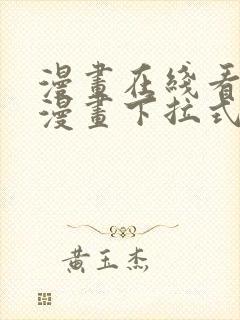 漫畫在綫看
漫畫下拉式
黄玉杰